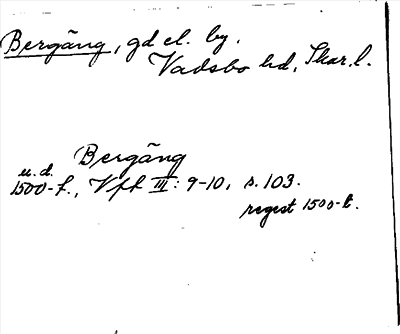 Bergäng, gd el. by.
Vadsbo hd, Skar. l.
Bergäng
u.d.
1500-t., Vfk III: 9-10, s. 103.
regest 1500-t.